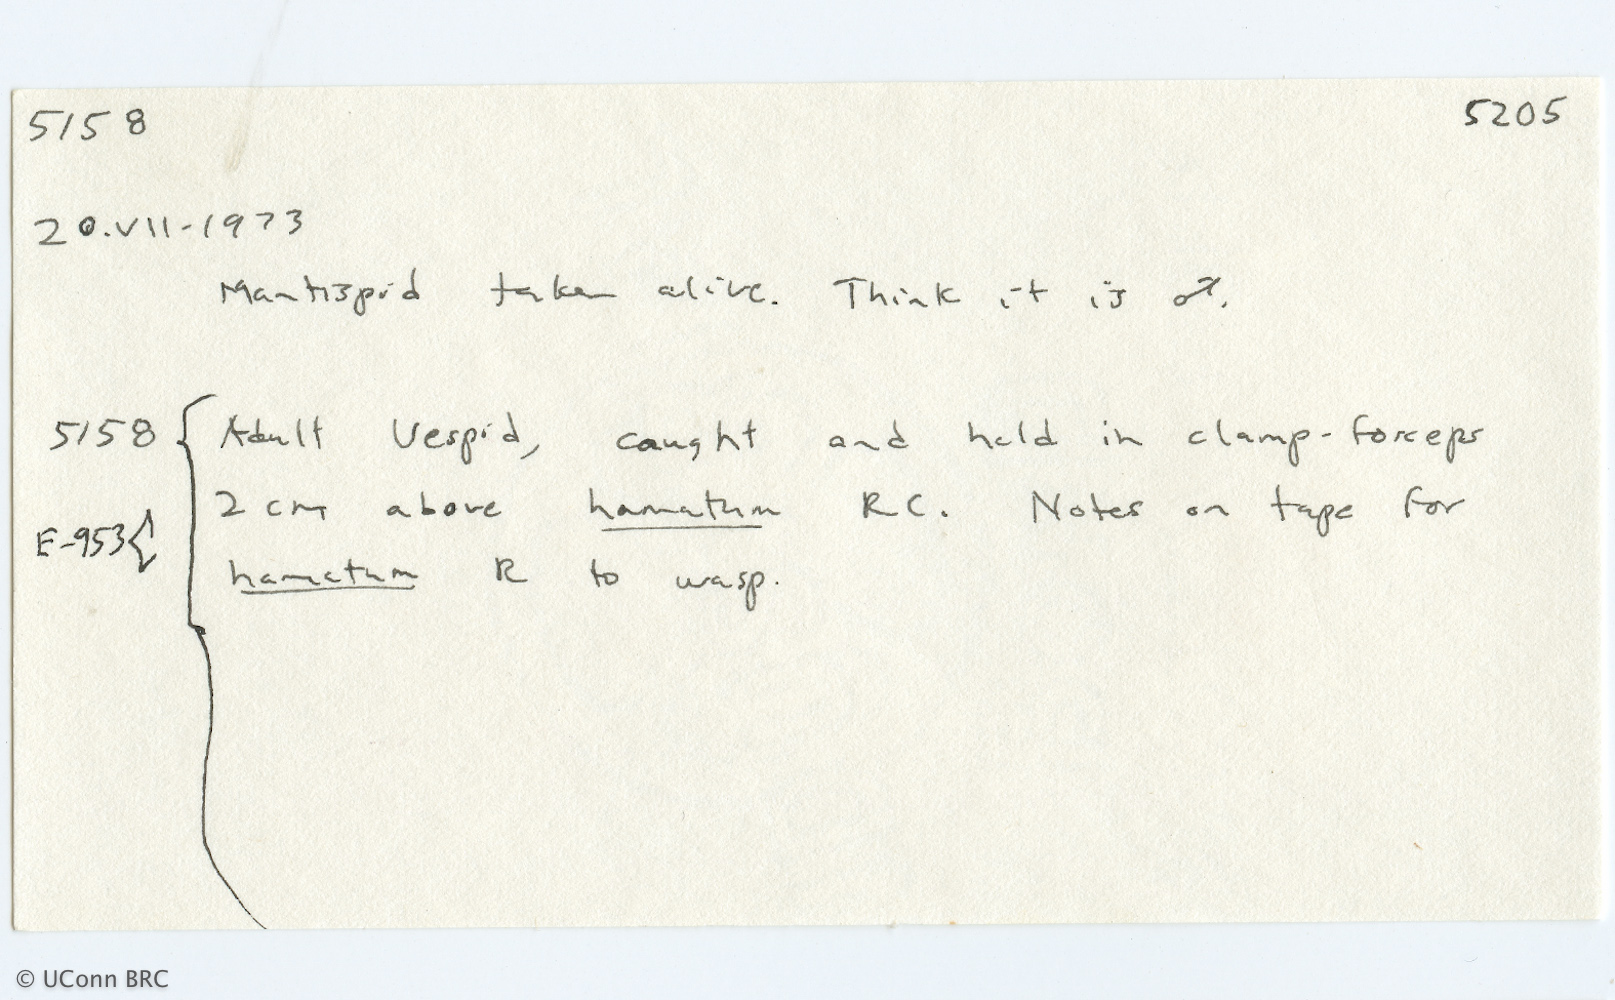 5158 5205
20.VII-1973
Mantispid taken alive. Think it is ♂.
5158 { Adult Vespid, caught and held in clamp-forceps
2 cm above hamatum RC. Notes on tape for
E-953 {
hamatum R to wasp.
© UConn BRC